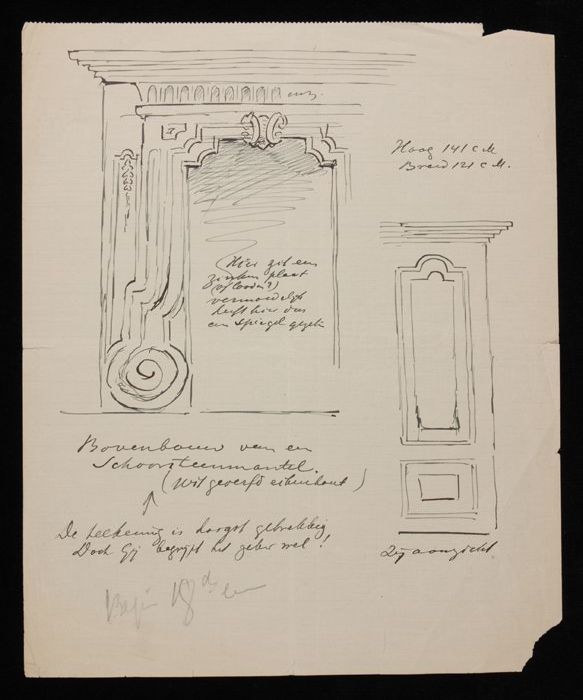 enz.
Hoog 141 c M
Breed 121 c M.
(Hier zit een
zinken plaat
(of looden?)
vermoedelijk
heeft hier dus
een spiegel gezeten
Bovenbouw van een
Schoorsteenmantel.
(wit geverfd eikenhout)
De teekening is hoogst gebrekkig
Doch Gij begrijpt het geheel wel!
Zij aanzicht.
Begin 18de